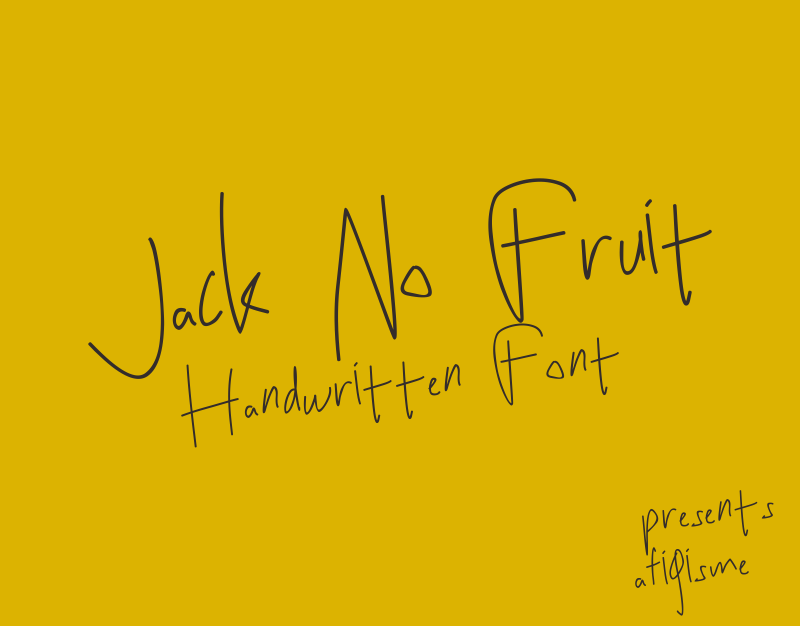 Jack No Fruit
Handwritten Font
presents
afiqisme